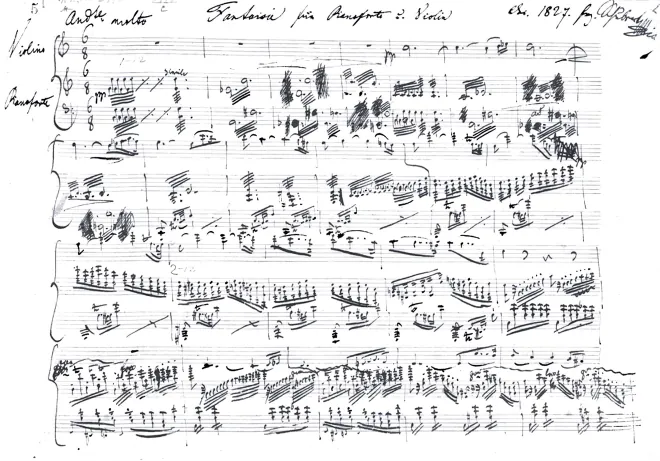 And.te molto Fantasie für Pianoforte u. Violin Dec. 1827. Frz Schubert
Violino
Pianoforte
simile